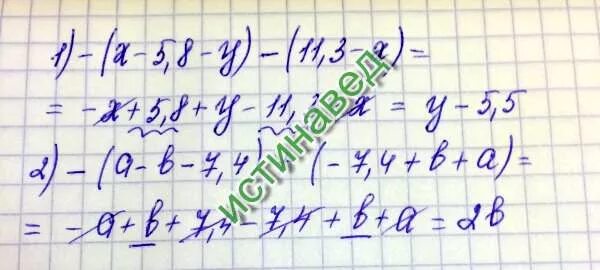 1) -(x-5,8-y)-(11,3-x)=
= -x+5,8+y-11, x = y-5,5
2) -(a-b-7,4) (-7,4+b+a)=
= -a+b+7,4-7,4+b+a=2b
истинавед